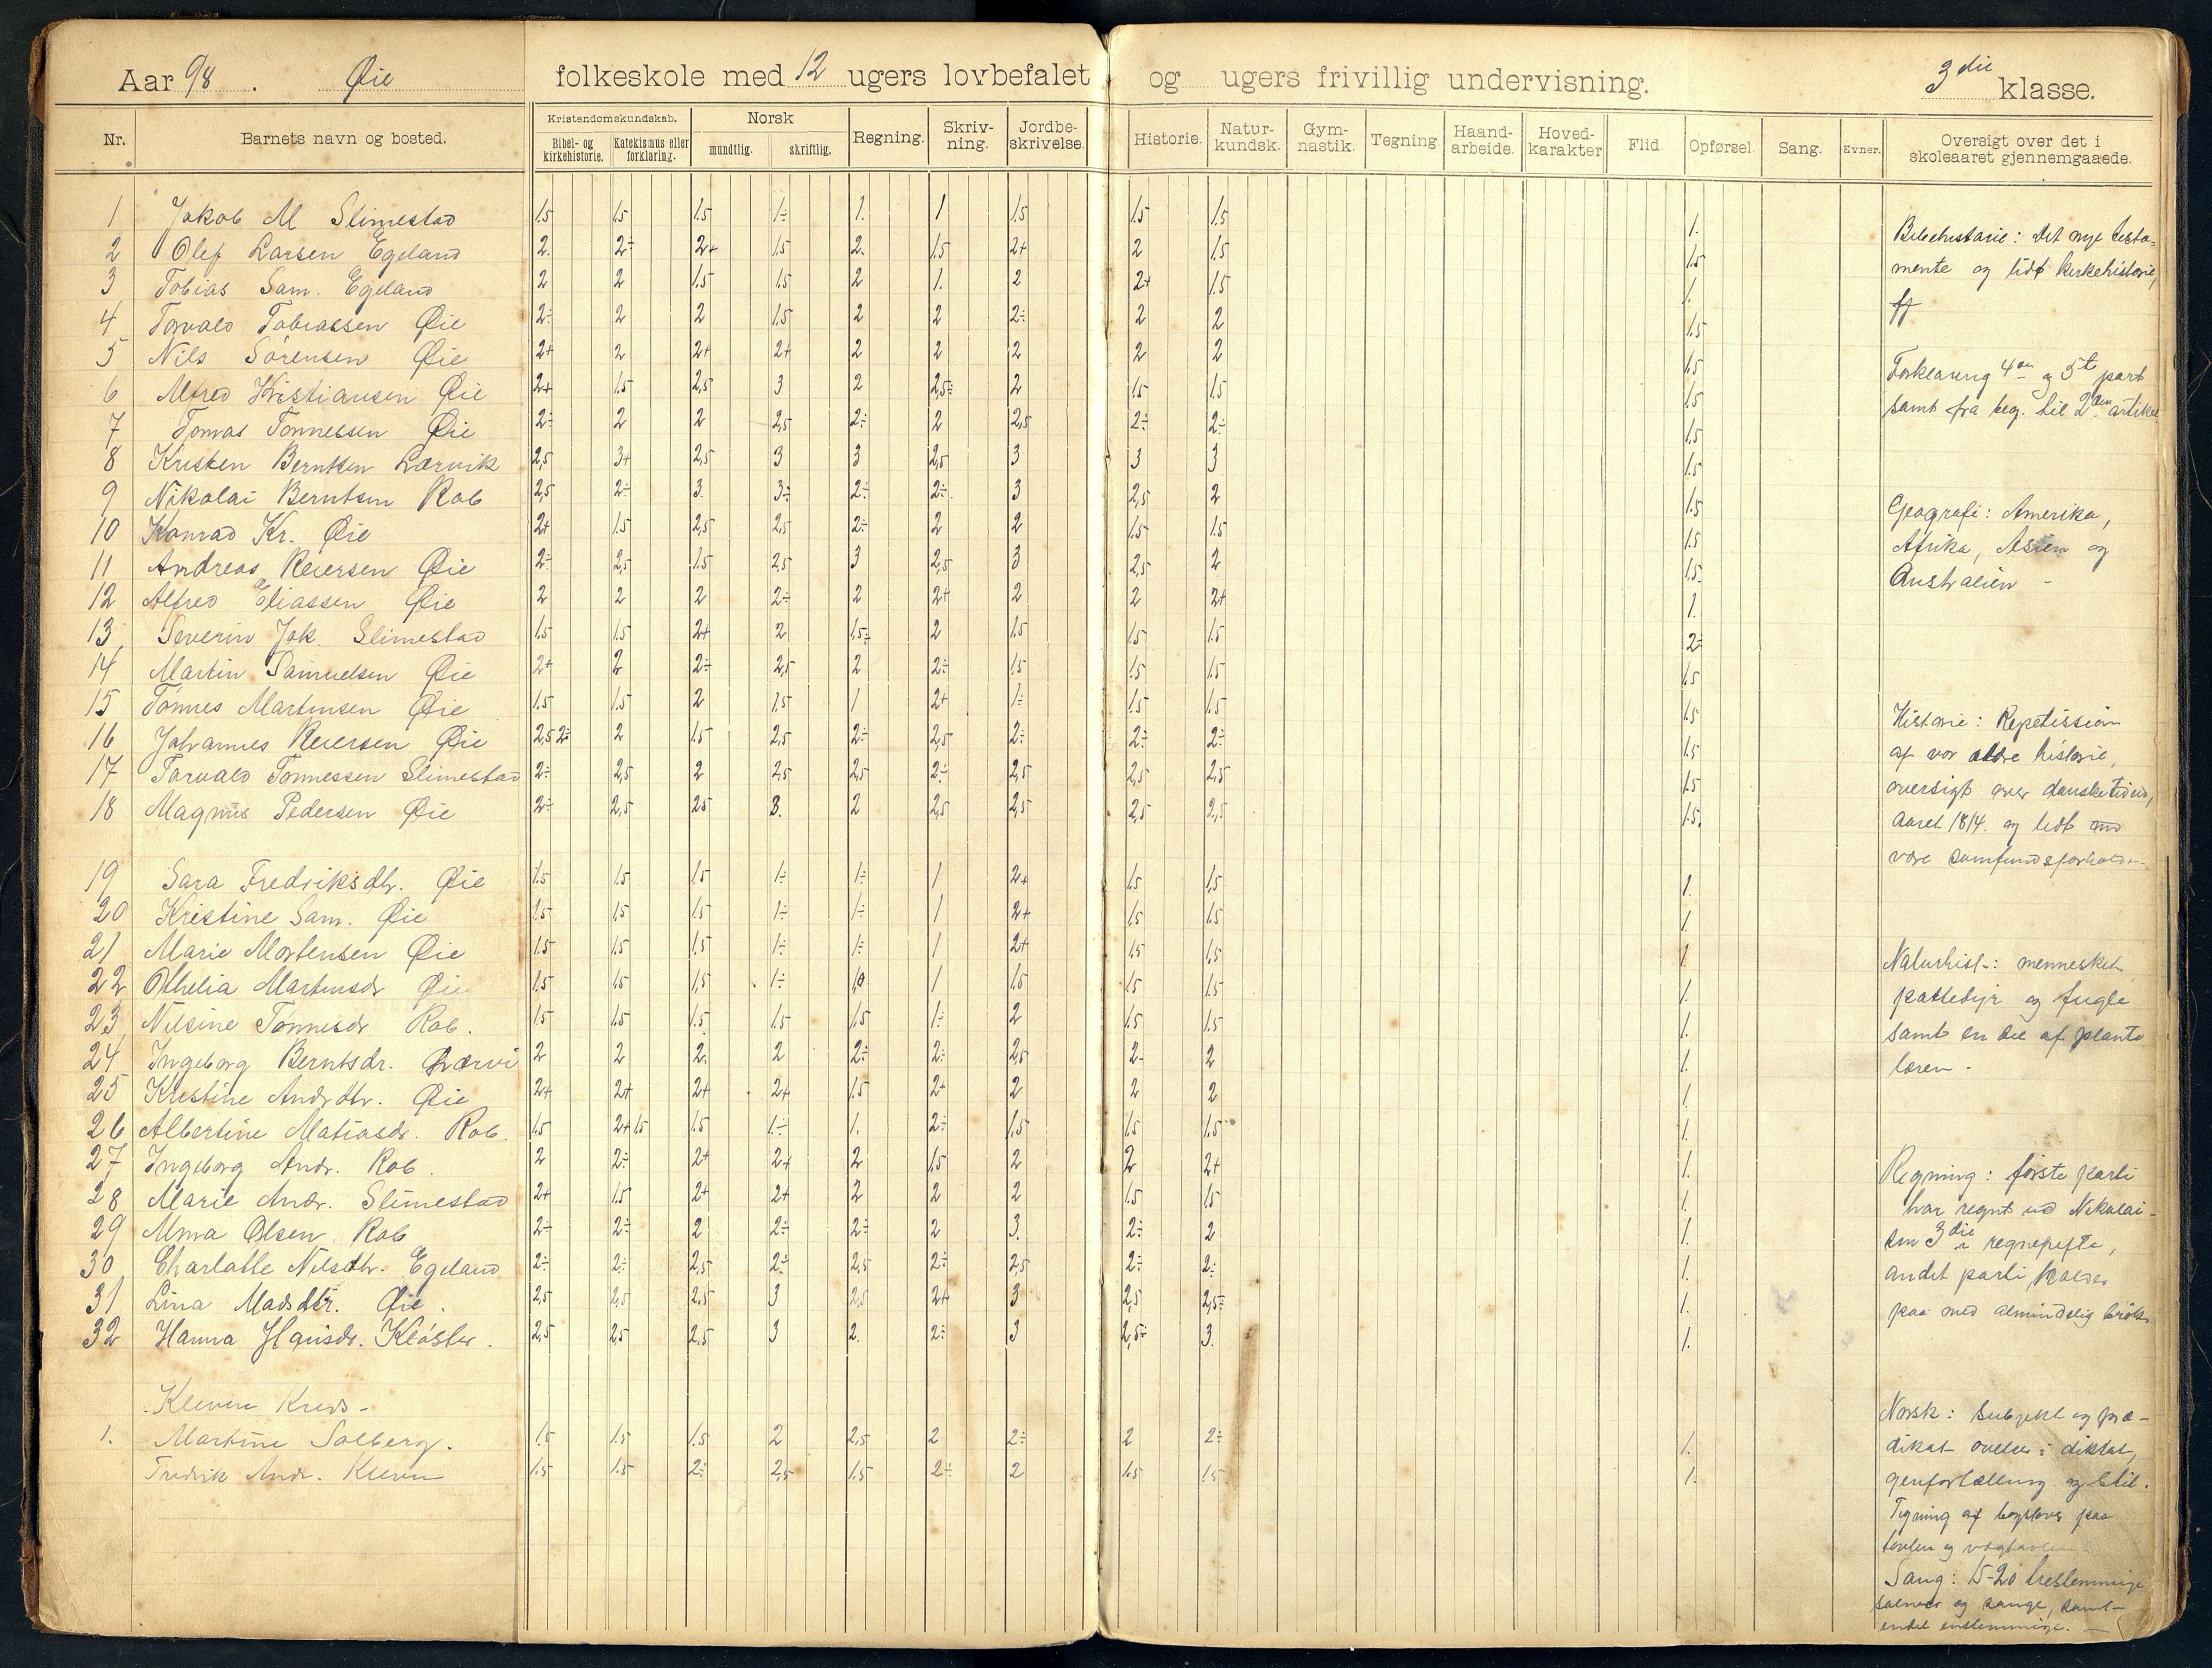 Aar 98. Øie folkeskole med 12 ugers lovbefalet og ugers frivillig undervisning. 3die klasse.
Nr. Barnets navn og bosted. Kristendomskundskab. Bibel- og kirkehistorie. Katekismus eller forklaring. Norsk mundtlig. skriftlig. Regning. Skriv-ning. Jordbe-skrivelse. Historie. Natur-kundsk. Gym-nastik. Tegning. Haand-arbeide. Hoved-karakter Flid. Opførsel. Sang. Evner. Oversigt over det i skoleaaret gjennemgaaede.
1 Jakob M Slimestad 1.5 1.5 1.5 1÷ 1. 1 1.5 1.5 1.5 1.
2 Olef Larsen Egeland 2. 2÷ 2+ 1.5 2. 1.5 2+ 2 1.5 1.5
3 Tobias Sam. Egeland 2 2 1.5 1.5 2 1. 2 2+ 1.5 1.
4 Torvald Tobiassen Øie 2÷ 2 2 1.5 2 2 2÷ 2 2 1.5
5 Nils Sørensen Øie 2+ 2 2+ 2+ 2 2 2 2 2 1.5
6 Alfred Kristiansen Øie 2+ 1.5 2,5 3 2 2,5÷ 2 1.5 1.5 1.5
7 Tomas Tønnessen Øie 2÷ 2 2 2,5 2÷ 2 2,5 2÷ 2÷ 1.5
8 Kristen Berntsen Lervik 2,5 3+ 2,5 3 3 2,5 3 3 3 1.5
9 Nikolai Berntsen Rob 2,5 2÷ 3. 3÷ 2÷ 2÷ 3 2,5 2 1.5
10 Konrad Kr. Øie 2+ 1.5 2,5 2,5 2÷ 2 2 1.5 1.5 1.5
11 Andreas Reiersen Øie 2÷ 2,5 1.5 2,5 3 2,5 3 2,5 2 1.5
12 Alfred Eliassen Øie 2 2 2 2÷ 2 2+ 2 2 2+ 1.
13 Severin Jak. Slimestad 1.5 1.5 2+ 2 1.5÷ 2 1.5 1.5 1.5 2÷
14 Martin Samuelsen Øie 2+ 2 2÷ 2,5 2 2÷ 1.5 1.5 1.5 1.5
15 Tønnes Martinsen Øie 1.5 1.5 2 1.5 1 2+ 1÷ 1.5 1.5 1.5
16 Johannes Reiersen Øie 2,5 2÷ 2 1.5 2,5 2÷ 2,5 2÷ 2÷ 2÷ 1.5
17 Torvald Tønnessen Slimestad 2÷ 2,5 2 2,5 2,5 2÷ 2,5 2,5 2,5 1.5
18 Magnus Pedersen Øie 2÷ 2,5 2.5 3. 2 2,5 2,5 2,5 2,5 1.5.
19 Sara Fredriksdtr. Øie 1.5 1.5 1.5 1÷ 1÷ 1 2+ 1.5 1.5 1.
20 Kristine Sam. Øie 1.5 1.5 1.5 1÷ 1÷ 1 2+ 1.5 1.5 1.
21 Marie Mortensen Øie 1.5 1.5 1.5 1÷ 1÷ 1 2+ 1.5 1.5 1.
22 Othelia Martinsdr Øie 1.5 1.5 1,5 1÷ 1 1.5 1.5 1.5 1.
23 Nilsine Tønnesdr Rob. 1.5 1.5 1.5 1.5 1.5 1÷ 2 1.5 1.5 1.
24 Ingeborg Berntsdr. Lervi 2 2 2. 2 2÷ 2÷ 2,5 2- 2 1.
25 Kristine Andrdtr. Øie 2+ 2+ 2+ 2+ 1.5 2+ 2 2 2 1.
26 Albertine Matiasdr. Rob. 1.5 2+ 1.5 1.5 1÷ 1. 2÷ 1.5 1.5 1.5 1.
27 Ingeborg Andr. Rob. 2 2÷ 2+ 2+ 2 1.5 2 2 2+ 1.
28 Marie Andr. Slimestad 2+ 1.5 2+ 2+ 2 2 2 1.5 1.5 1.
29 Alma Olsen Rob 2÷ 2÷ 2 2÷ 2÷ 2 3. 2÷ 2 1.
30 Charlotte Nilsdtr. Egeland 2÷ 2÷ 2,5 2÷ 2,5 2÷ 2,5 2÷ 2÷ 1.
31 Lina Madsdtr. Øie. 2,5 2,5 2.5 3 2,5 2+ 3 2,5 2,5÷ 1.
32 Hanna Hansdr. Kloster. 2,5 2,5 2,5 3 2. 2÷ 3 2,5÷ 3. 1.
Kleven Kreds-
1. Martine Solberg. 1.5 1.5 1.5 2 2,5 2 2÷ 2 2÷ 1.
Fredrik Andr. Kleven 1.5 1.5 2÷ 2,5 1.5 2÷ 2 1.5 1.5 1.
Bibelhistorie: Det nye testa=
mente og lidt kirkehistorie,
Forklaring 4de og 5te part
samt fra beg. til 2den artikel
Geografi: Amerika,
Afrika, Asien og
Australien -
Historie: Repetission
af vor ældre historie,
oversigt over dansketiden,
aaret 1814. og lidt
vore samfundsforhold
Naturhist-: mennesket
pattedyr og fugle
samt en del af plante
læren.
Regning: første parti
har regnt ud Nikolai-
sen 3die regnehefte,
andet parti holder
paa med almindelig brøk.
Norsk: Subjekt og præ-
dikat øvelser i diktat,
genfortælling og stil.
Tegning af bogstaver paa
tavlen og vægtavlen
Sang: 15-20 trestemmige
salmer og sange, samt
endel enstemmige. -